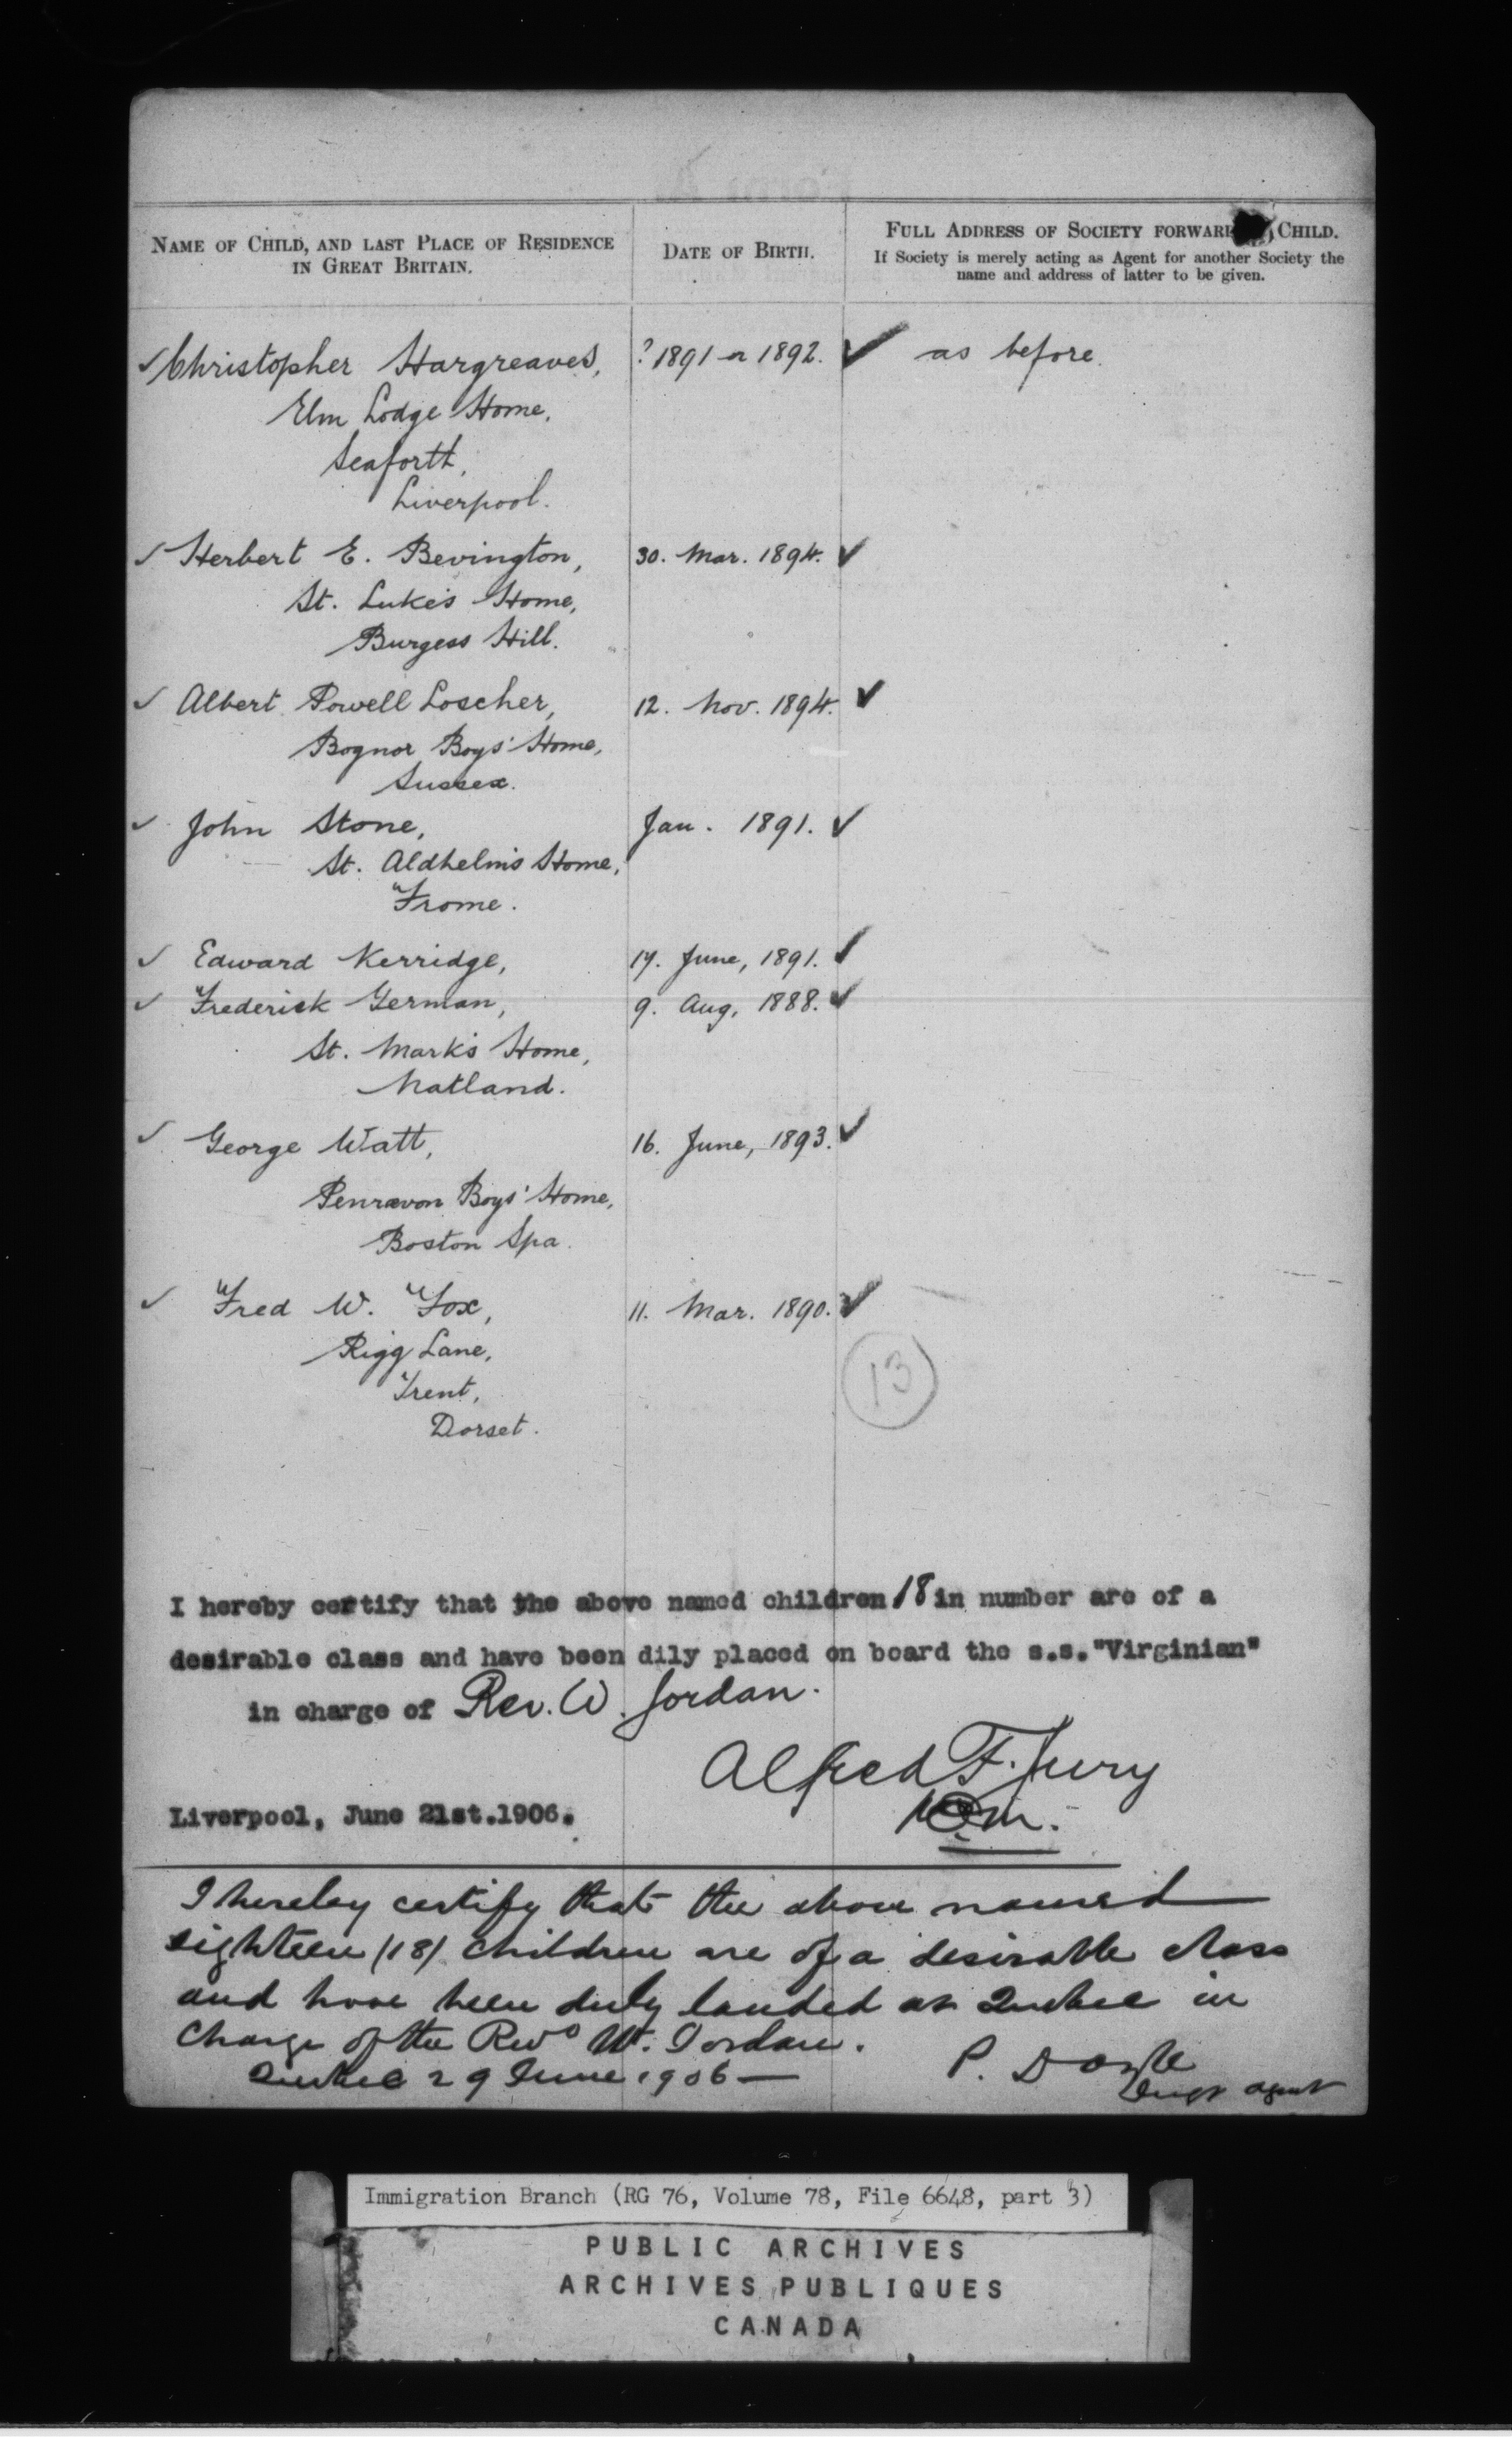 NAME OF CHILD, AND LAST PLACE OF RESIDENCE
IN GREAT BRITAIN.
DATE OF BIRTH.
FULL ADDRESS OF SOCIETY FORWARD CHILD.
If Society is merely acting as Agent for another Society the
name and address of latter to be given.
✓ Christopher Hargreaves, ? 1891 or 1892. ✓ as before.
Elm Lodge Home,
Seaforth,
Liverpool.
✓ Herbert E. Bevington, 30. Mar. 1894. ✓
St. Luke's Home,
Burgess Hill.
✓ Albert Powell Loscher, 12. Nov. 1894. ✓
Bognor Boys' Home,
Sussex.
✓ John Stone, Jan. 1891. ✓
St. Aldhelm's Home,
Frome.
✓ Edward Kerridge, 17. June, 1891. ✓
✓ Frederick German, 9. Aug, 1888. ✓
St. Mark's Home,
Natland.
✓ George Watt, 16. June, 1893. ✓
Penraevon Boys' Home,
Boston Spa.
✓ Fred W. Fox, 11. Mar. 1890. ✓
Rigg Lane,
Trent,
Dorset.
13
I hereby certify that the above named children 18 in number are of a
desirable class and have been dily placed on board the s.s."Virginian"
in charge of Rev. W. Jordan.
Alfred F. Jury
Liverpool, June 21st.1906.
I hereby certify that the above named
eighteen (18) children are of a desirable class
and have been duly landed at Quebec in
charge of the Revd W. Jordan.
Quebec 29 June 1906 — P. Doyle
agent
Immigration Branch (RG 76, Volume 78, File 6648, part 3)
PUBLIC ARCHIVES
ARCHIVES PUBLIQUES
CANADA